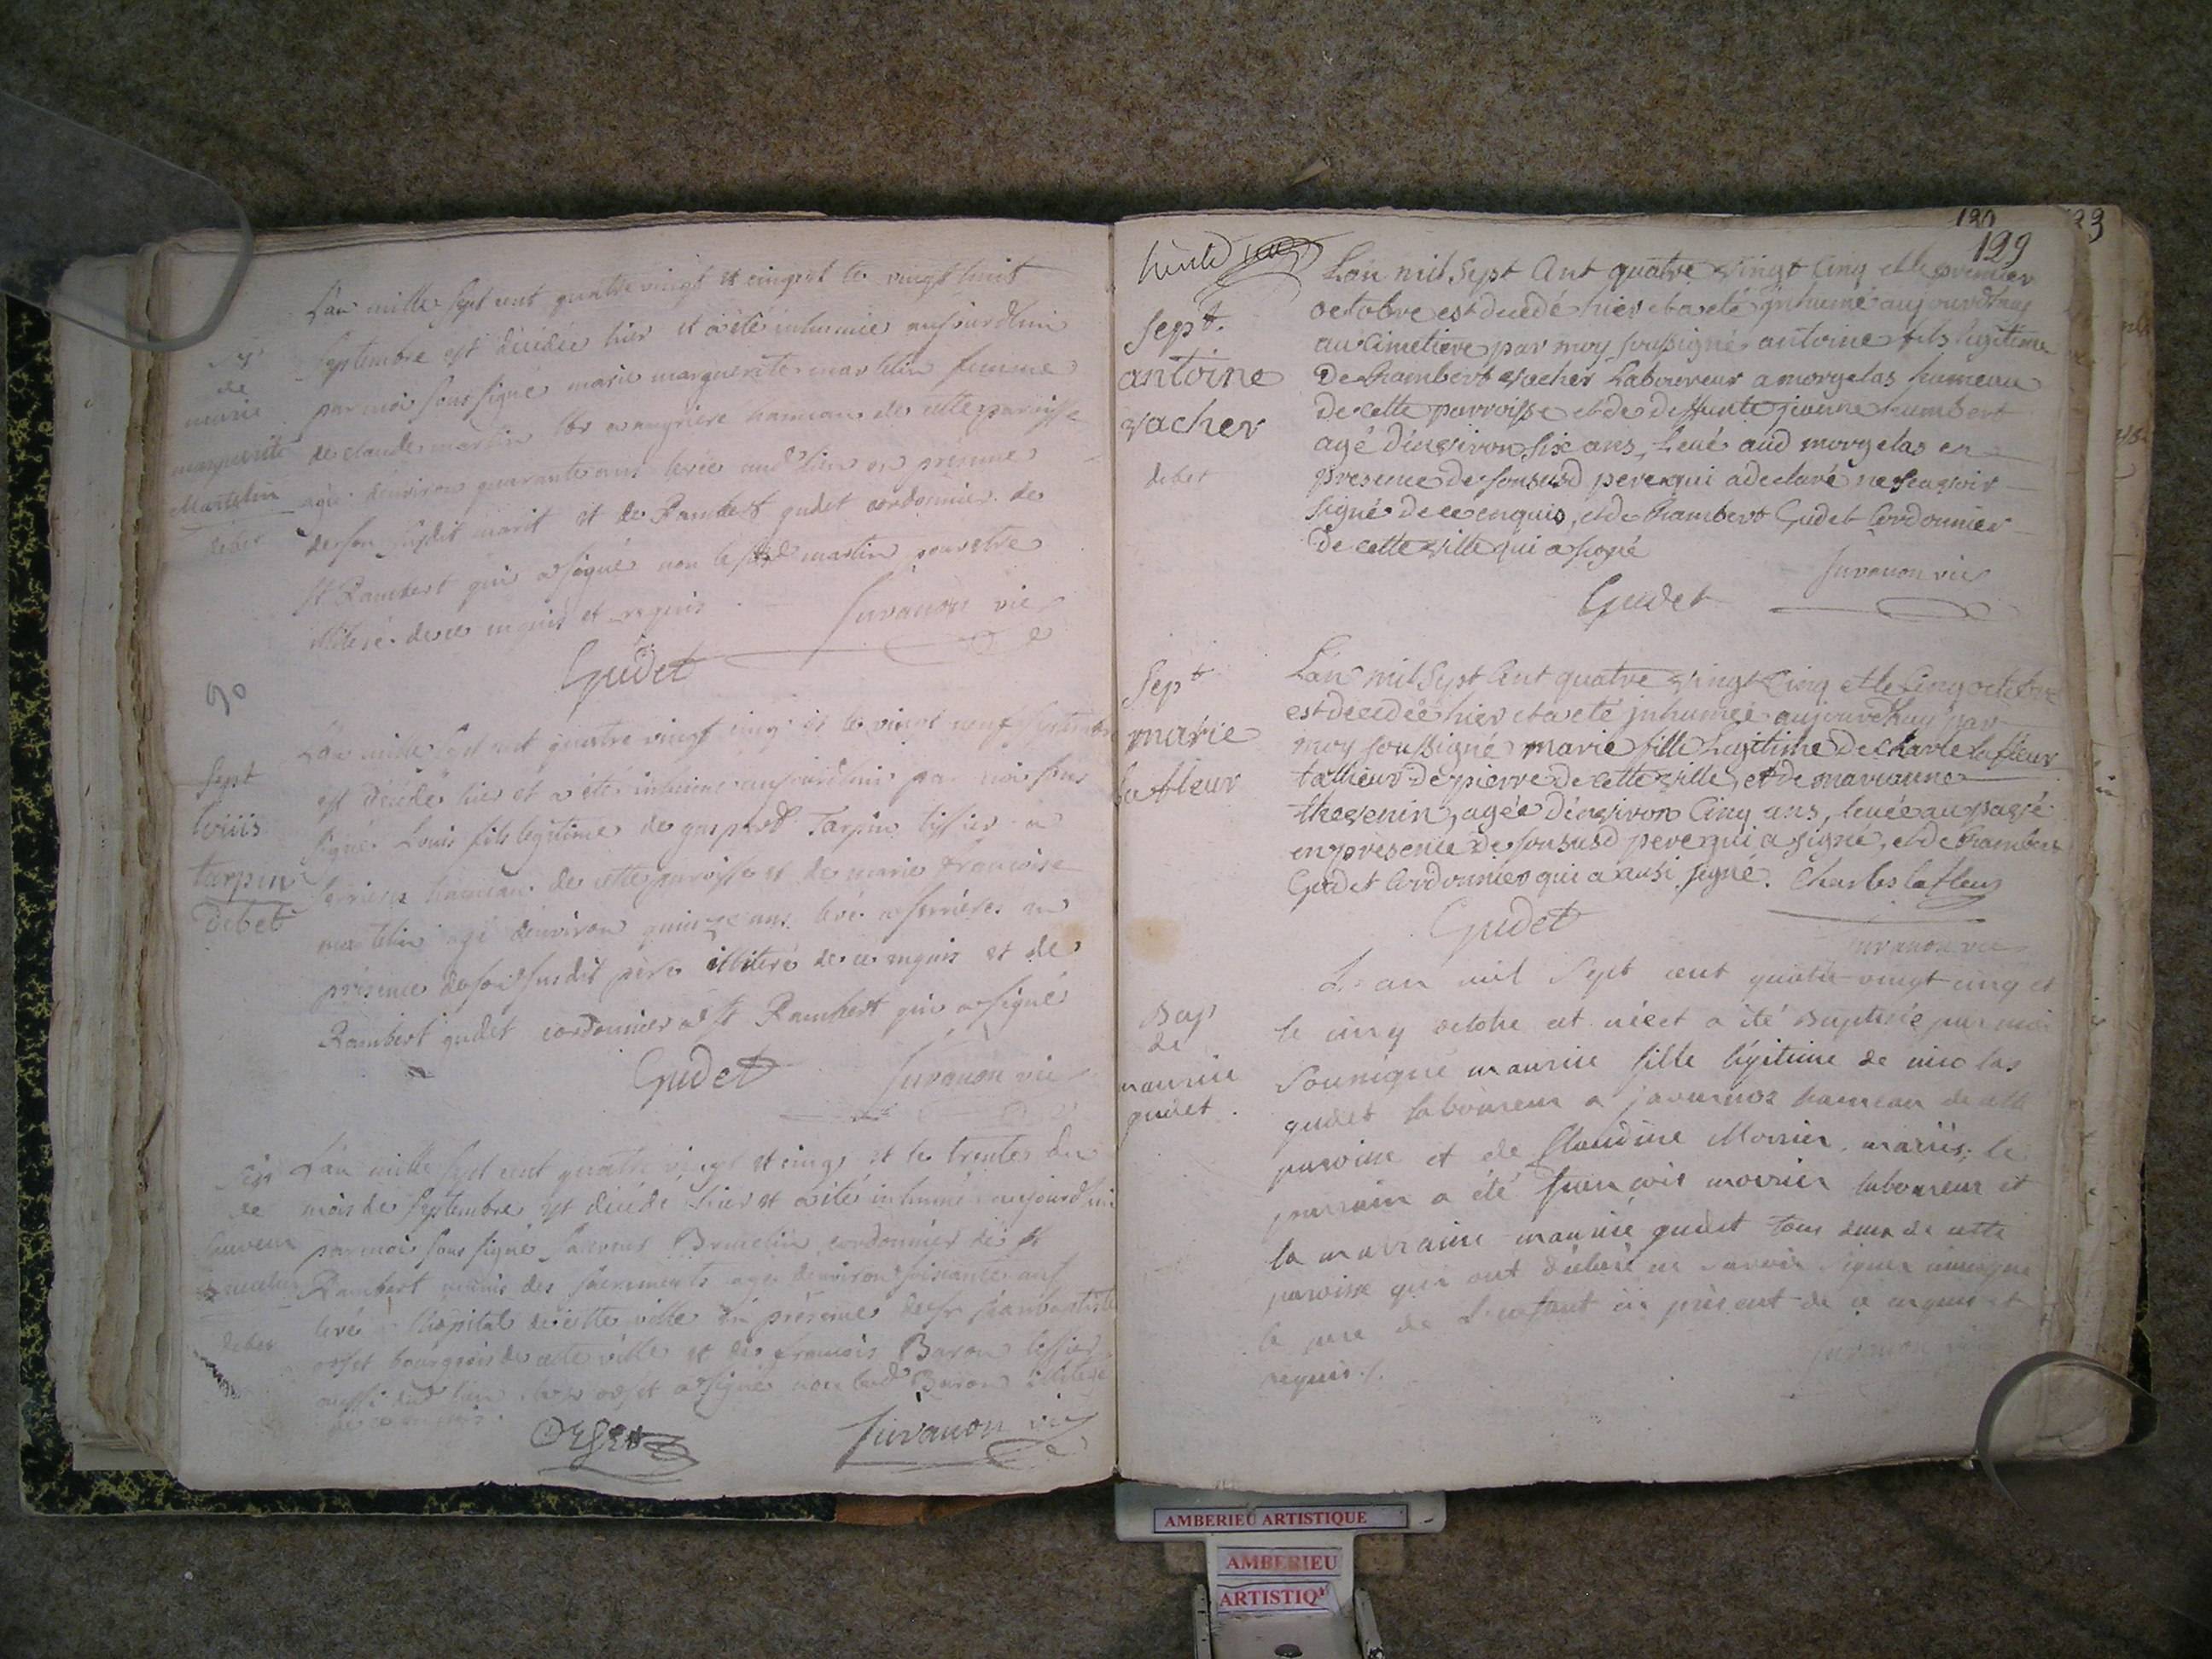 L'an mille sept cent quatre vingt et cinq et le vingt huit
septembre est décédée hier et a été inhumée aujourdhui
par moi sous signé marie marguerite martelin femme
de claude martin hameau de cette paroisse
agée d'environ quarante ans levée aud lieu en presence
de son susdit marit et de Rambert gudet cordonnier de
St Rambert qui a signé non le susd martin pour etre
illiteré de ce enquis et requis
Juvanon vic
Gudet
de
marie
marguerite
Martelin
debet
90
L'an mille sept cent quatre vingt cinq et le vingt neuf septembre
est décédé hier et a été inhumé aujourdhui par moi sous
signé Louis fils legitime de gaspard Tarpin tissier a
serrieres hameau de cette paroisse et de marie françoise
martelin agé d'environ quinze ans levé a serrieres en
présence de son susdit père illiteré de ce enquis et de
Rambert gudet cordonnier a St Rambert qui a signé
Gudet Juvanon vic
Sept
louis
tarpin
debet
L'an mille sept cent quatre vingt et cinq et le trente du
mois de septembre est décédé hier et a été inhumé aujourdhui
par moi sous signé cordonnier de St
Rambert munis des sacrements agé d'environ soixante ans
levé a l'hopital de cette ville en présence de sr jean baptiste
orset bourgeois de cette ville et de francois Baron tissier
aussi dud lieu orset a signé non led Baron illiteré
de ce enquis.
Orset Juvanon vic
Sep
de
debet
130
123
129
Sept.
antoine
vacher
debet
L'an mil Sept Cent quatre vingt Cinq et le premier
octobre est décédé hier et a eté jnhumé aujourdhuy
au Cimetiere par moy soussigné antoine fils legitime
de Rambert vacher Laboureur a morgelas hameau
de cette parroisse et de deffunte jeanne humbert
agé d'environ six ans, levé aud morgelas en
presence de son susd pere qui a declaré ne sçavoir
signé de ce enquis, et de Rambert Gudet Cordonnier
de cette ville qui a signé
Juvanon vic
Gudet
Sept
marie
lafleur
L'an mil Sept Cent quatre vingt Cinq et le Cinq octobre
est decedée hier et a eté jnhumée aujourdhuy par
moy soussigné marie fille Legitime de Charle lafleur
tallieur de pierre de cette ville, et de marianne
thevenin, agée d'environ Cinq ans, levée au pavé
en presence de son susd pere qui a signé, et de Rambert
Gudet Cordonnier qui a ausi signé. Charles lafleur
Gudet
Juvanon vic
Bap
de
maurise
gudet.
L'an mil sept cent quatre-vingt cinq et
le cinq octobre est née et a été Baptisée par moi
Sousigné maurise fille légitime de nicolas
gudet laboureur a javornoz hameau de cette
paroisse et de Claudine Movrier mariés; le
parrain a été francois movrier laboureur et
la marraine maurise gudet tous deux de cette
paroisse qui ont déclaré ne savoir signer ainsi que
le pere de l'enfant ici présent de ce enquis et
requis./.
Juvanon vic
AMBERIEU ARTISTIQUE
AMBERIEU
ARTISTIQ